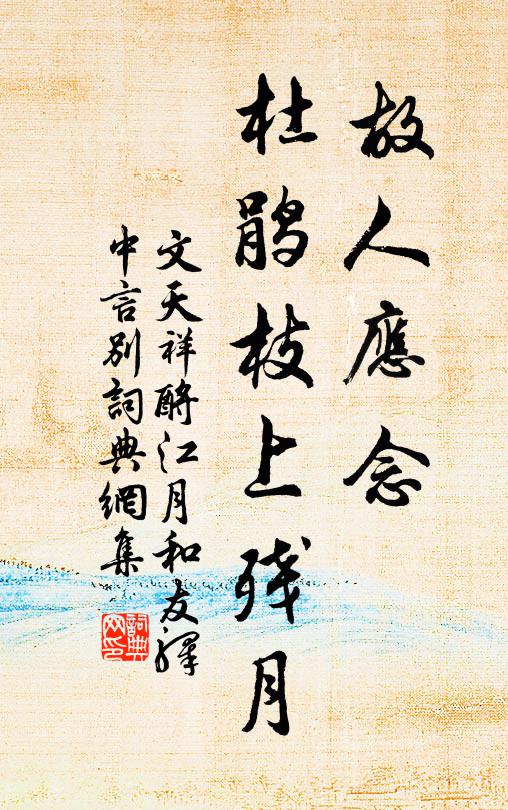 故人應念
杜鹃枝上残月
文天祥酹江月和友驛
中言别詞典網集
詞典网印